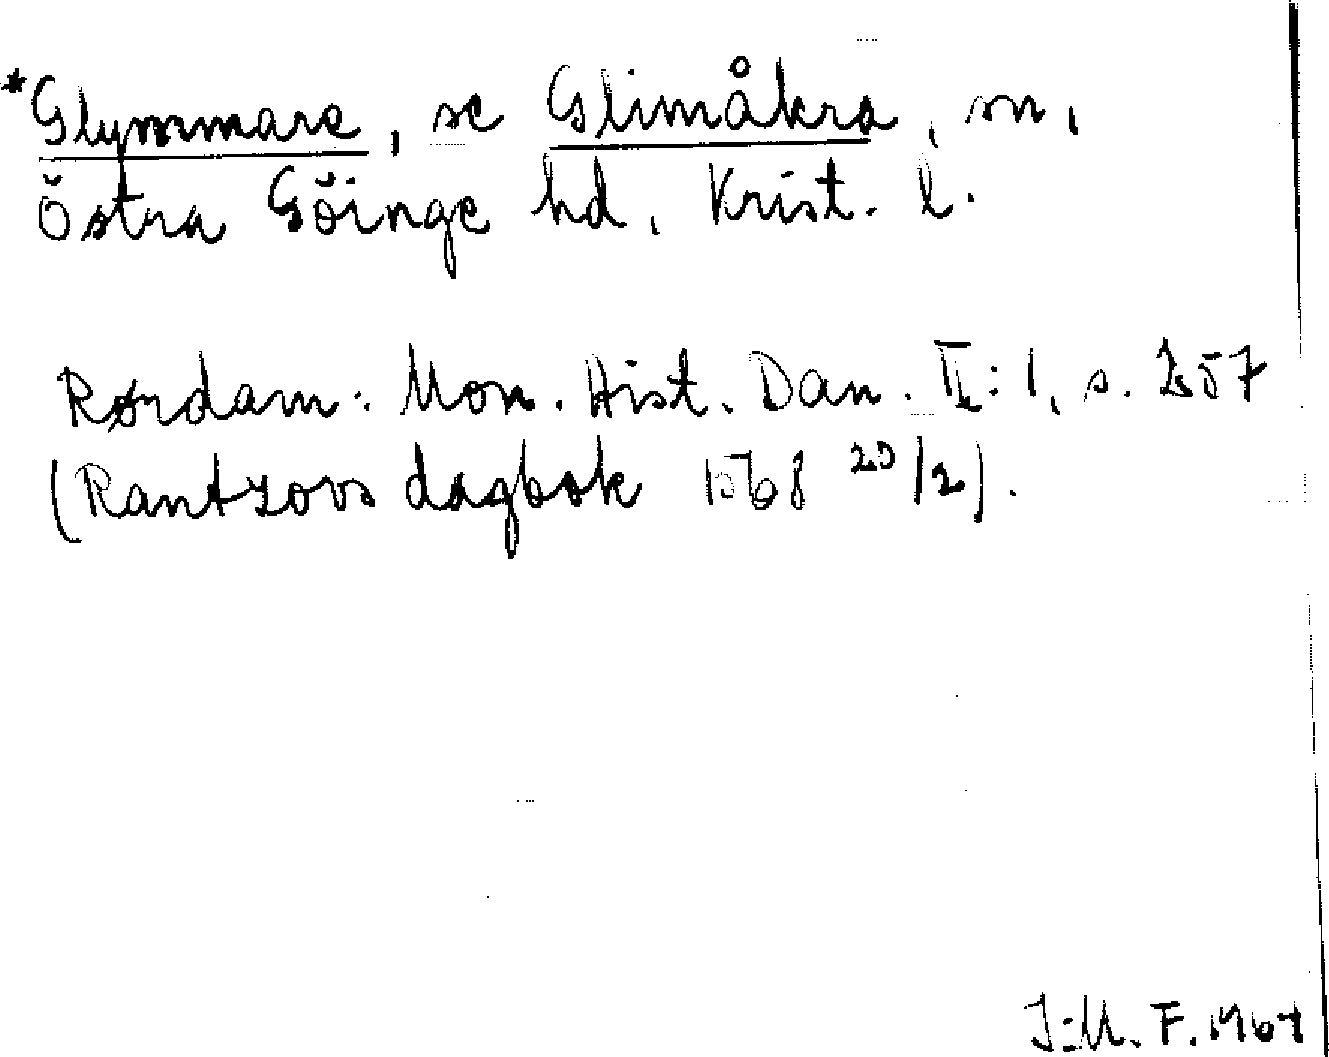 *Glymmare, se Glimåkra, sn,
Östra Göinge hd, Krist. l.
Rørdam: Mon. Hist. Dan. II:1, s. 257
(Rantzovs dagbok 1568 20/2).
I:M. F. 1967